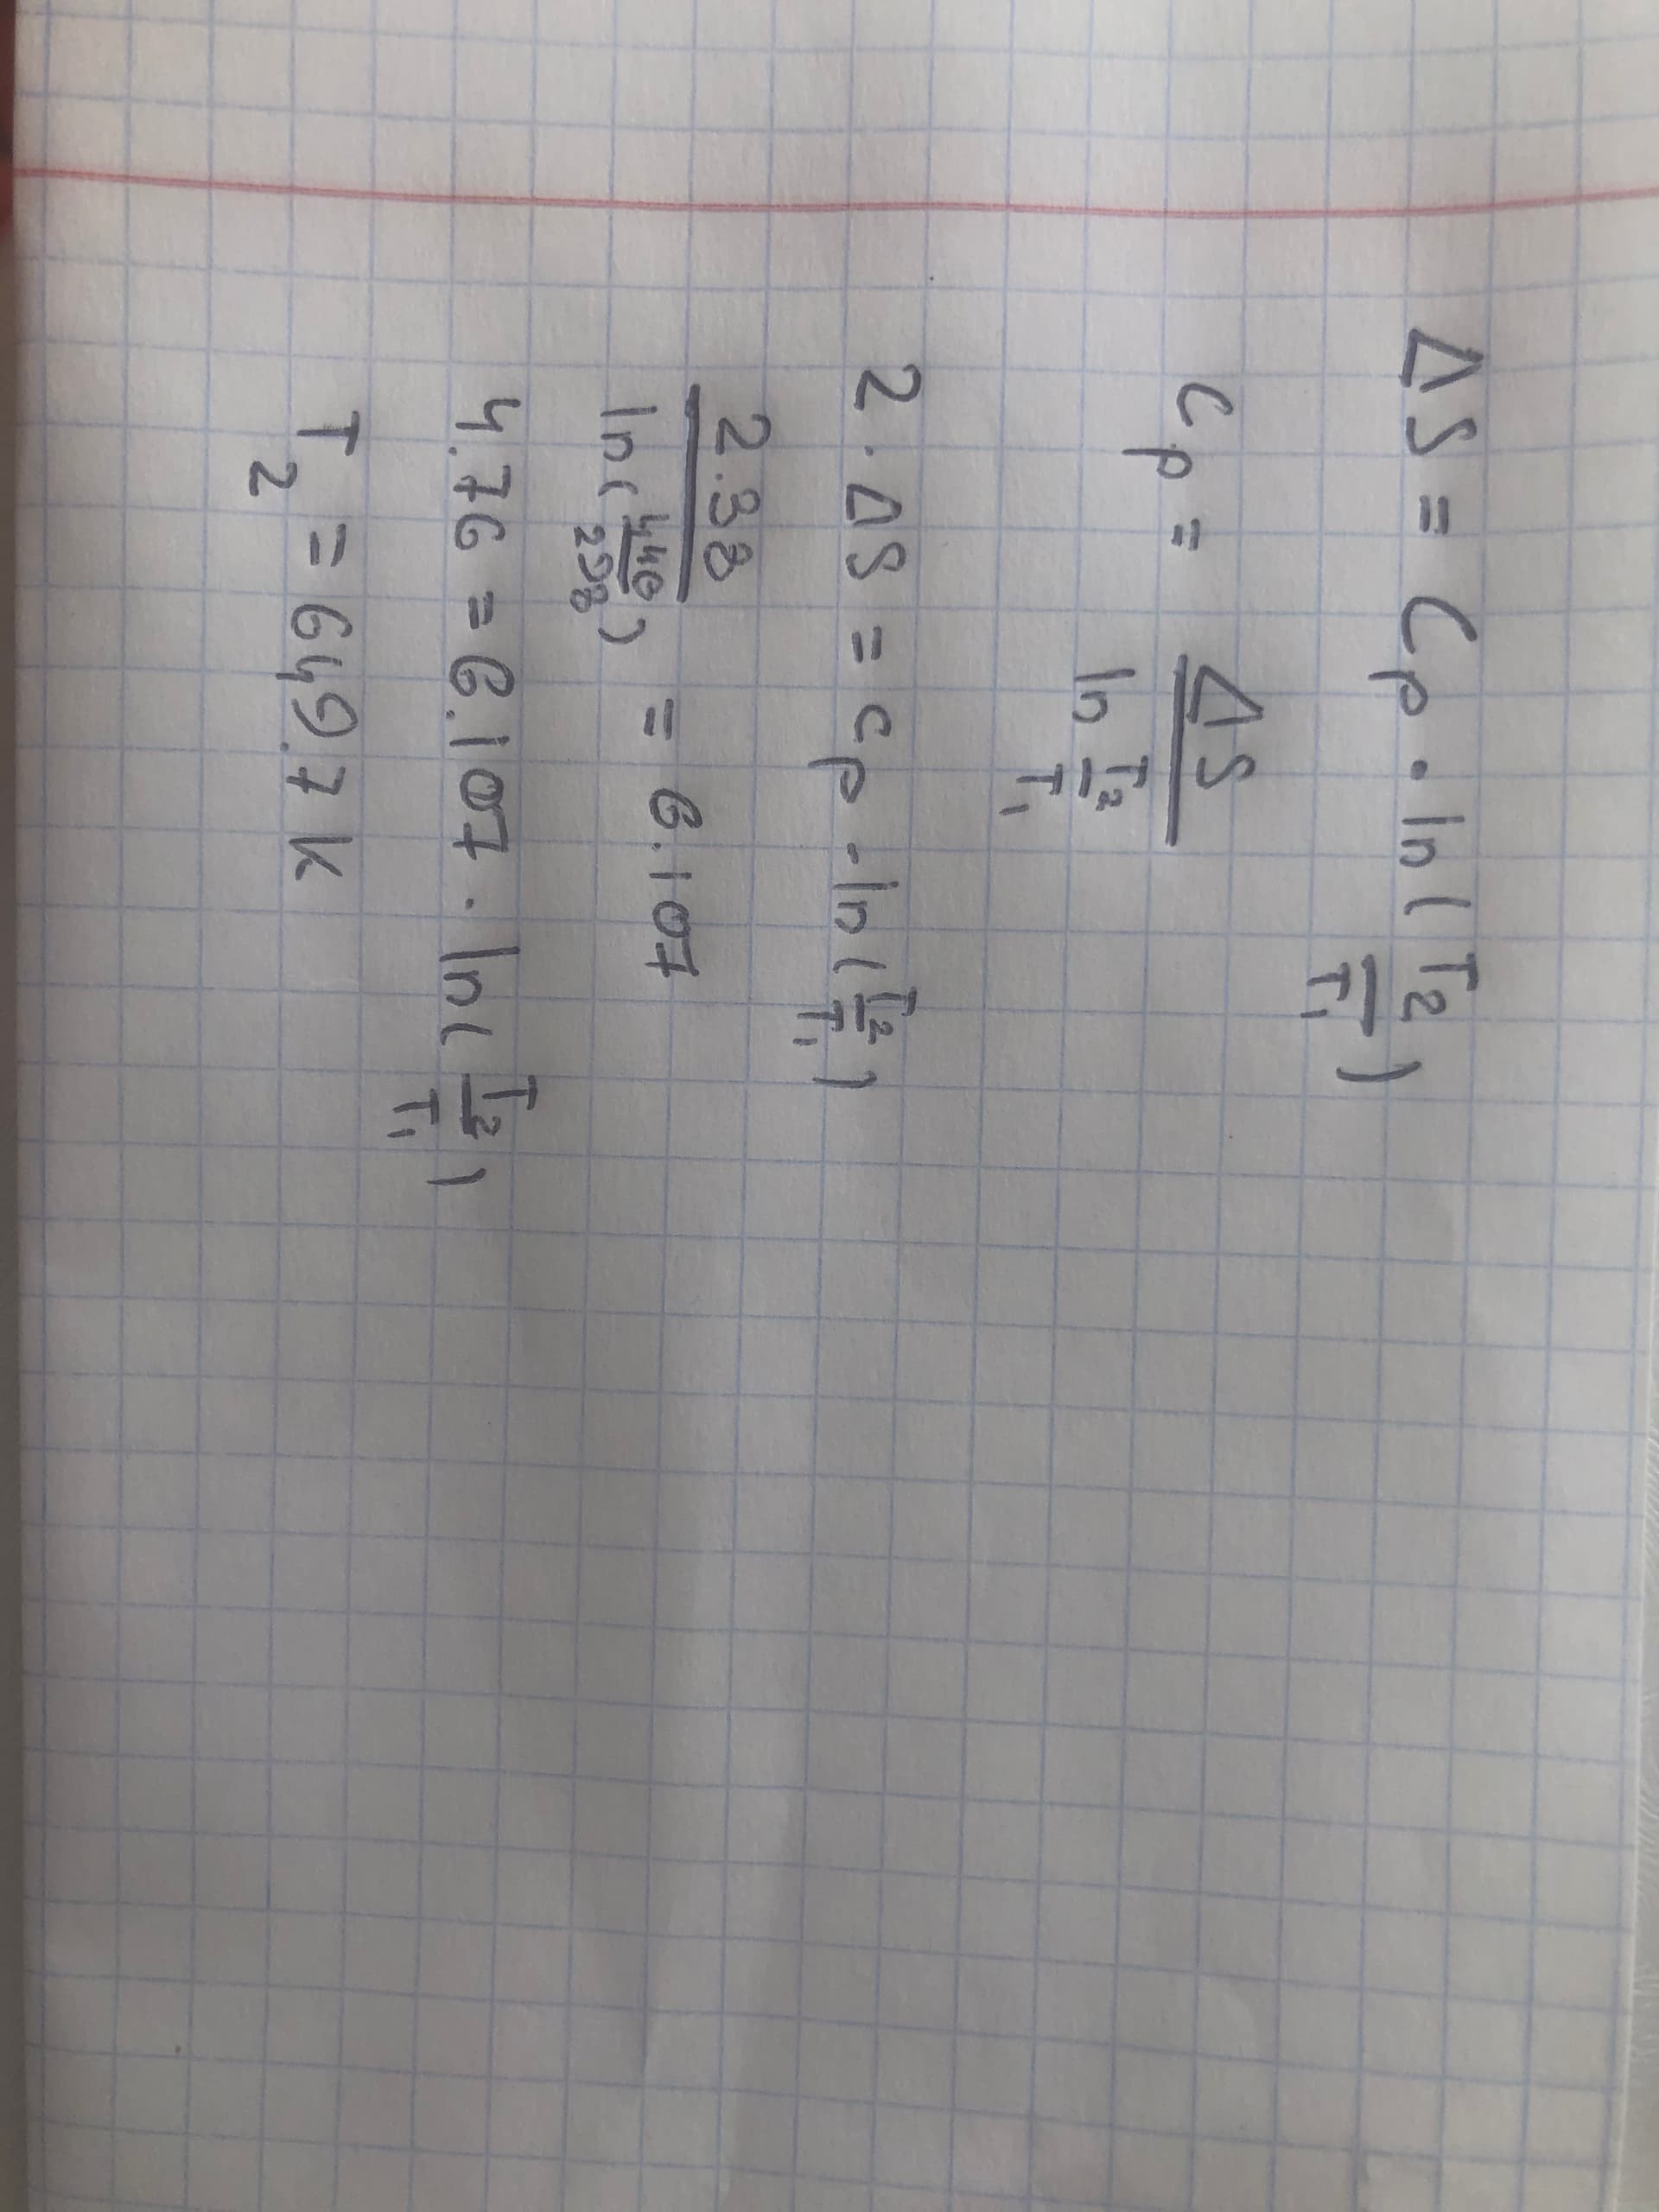 ΔS = Cp · ln(T2/T1)
Cp = ΔS / ln T2/T1
2 · ΔS = Cp · ln(T2/T1)
2.38 / ln(440/298) = 6.107
4.76 = 6.107 · ln(T2/T1)
T2 = 649.7 K